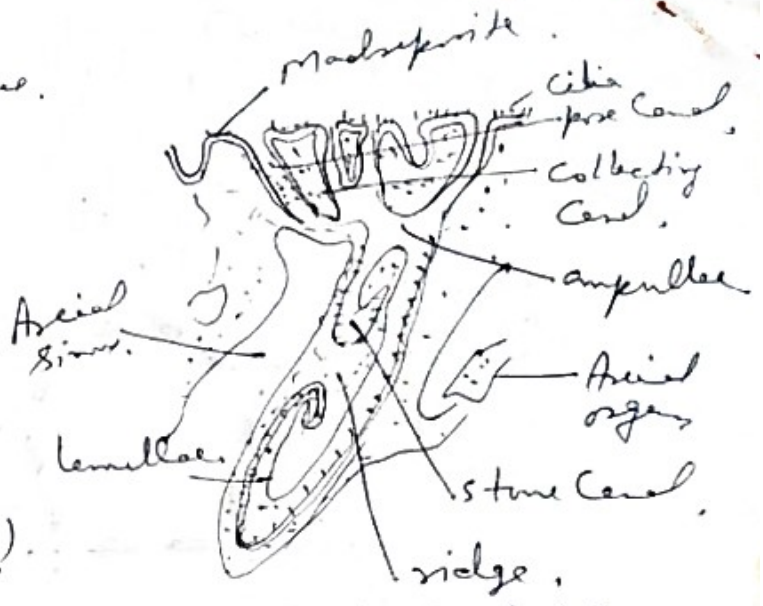 Madreporite.
Cilia
pore Canal,
Collecting
Canal,
ampullae
Axial
sinus.
Axial
organ
lamellae.
stone Canal,
ridge,
).